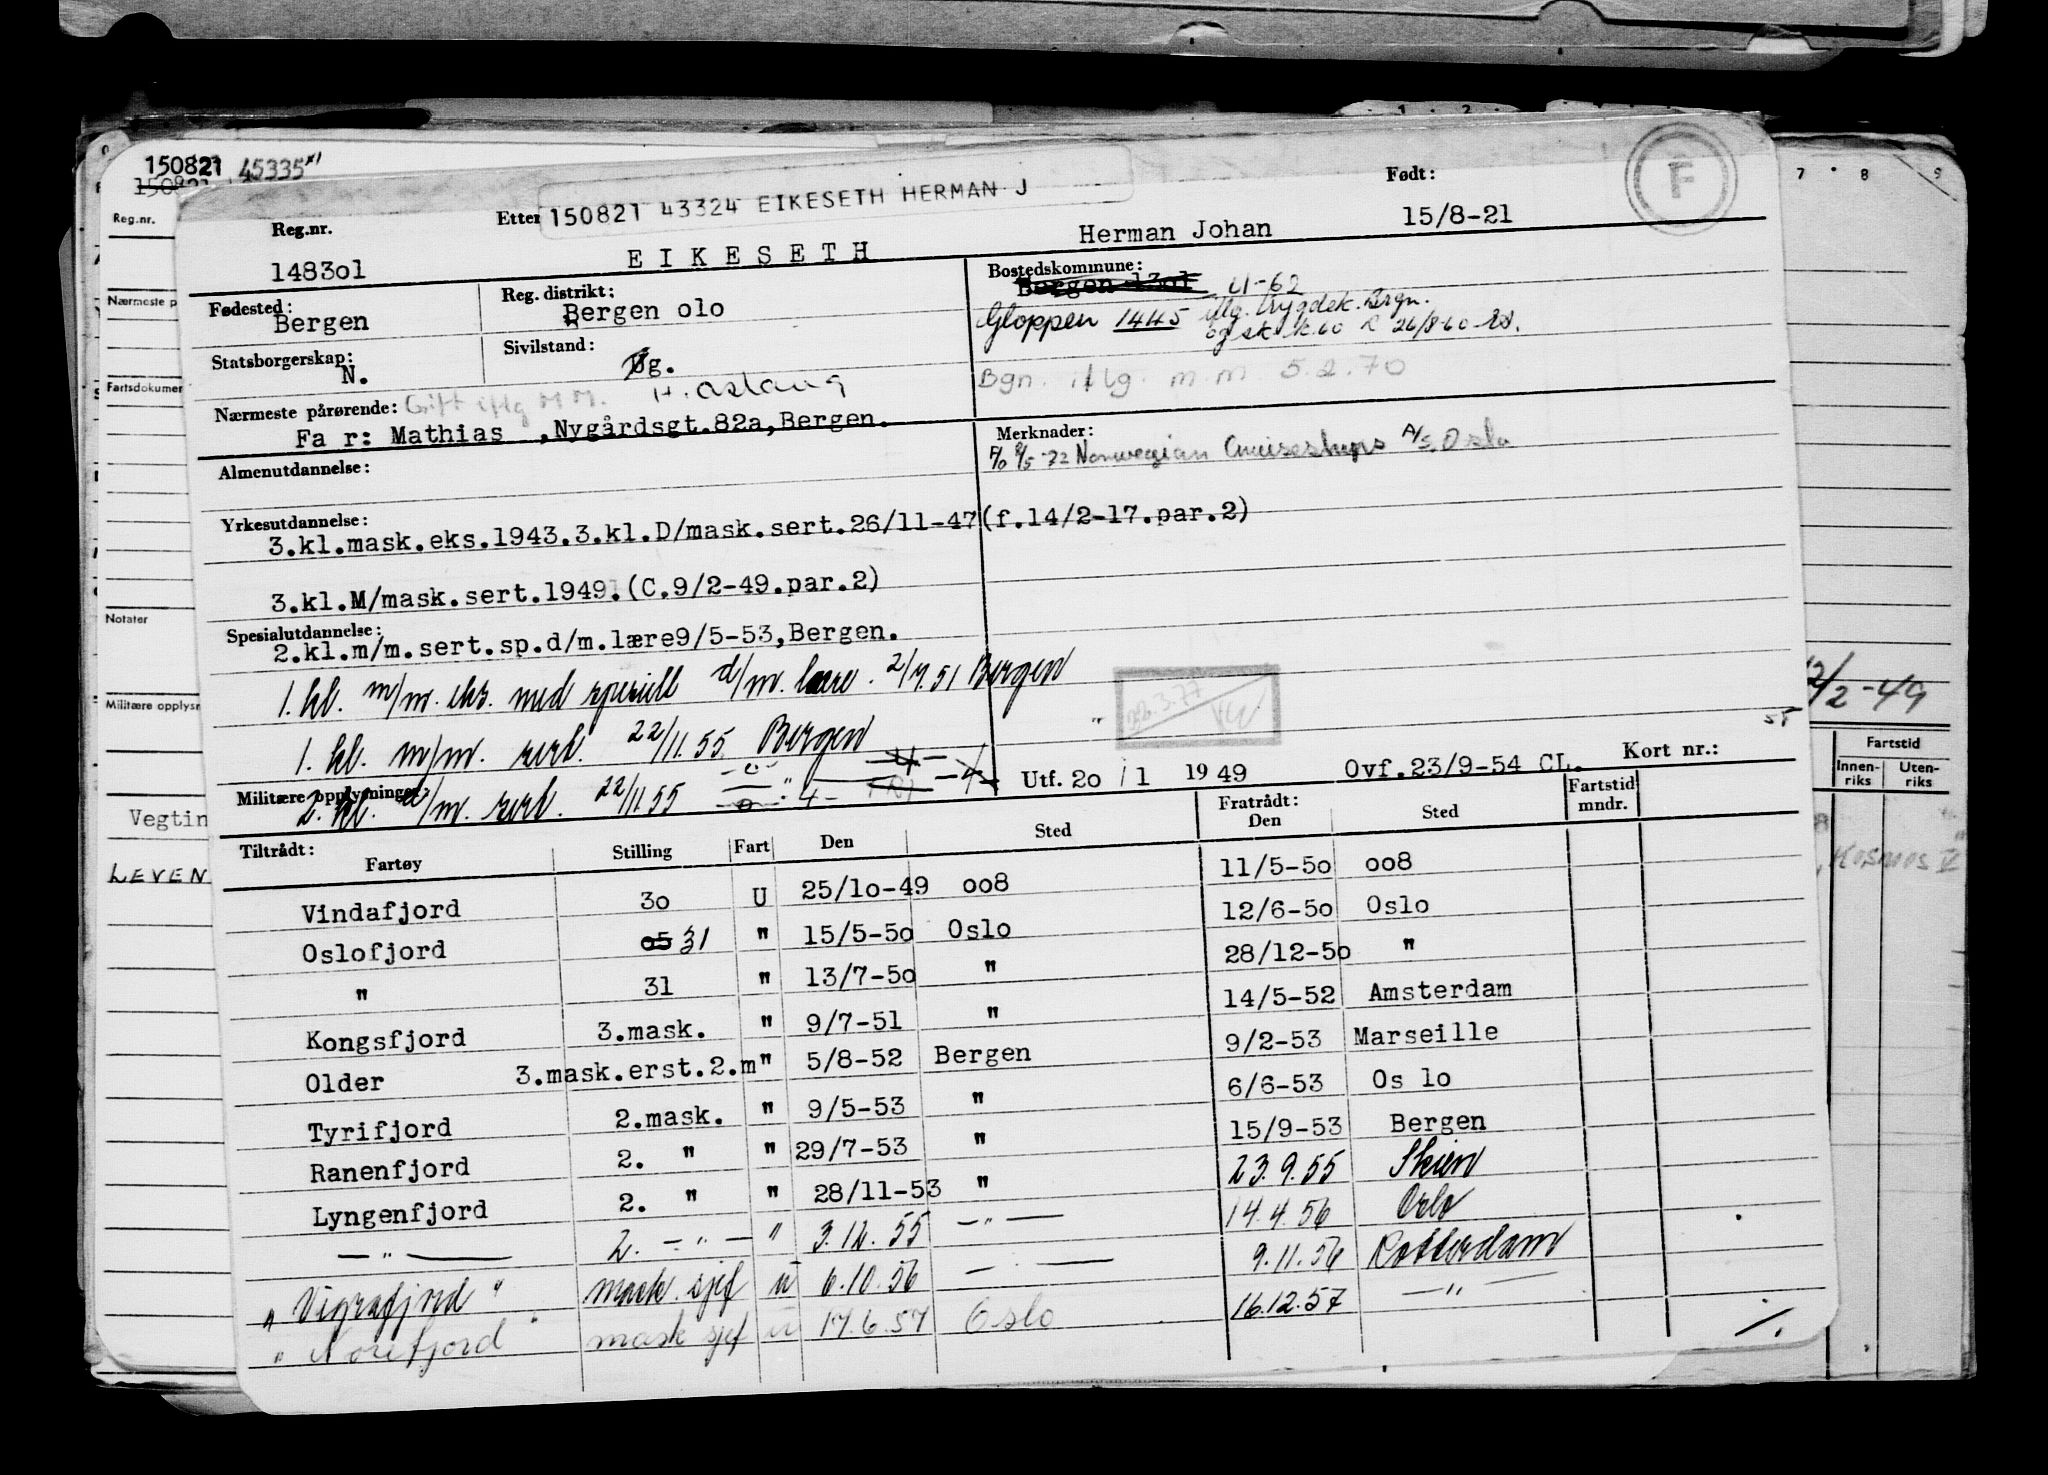 150821 45335
150821 43324 EIKESETH HERMAN J
Reg.nr. Etter Født:
148301 EIKESETH Herman Johan 15/8-21
F
Fødested: Reg. distrikt: Bostedskommune:
Bergen Bergen olo Bergen 1301 U-62
Gloppen 1445 iflg. trygdek. Brgn.
og sk k 60 R 26/8-60
Statsborgerskap: Sivilstand:
N. Ug.
Bgn. iflg. m.m 5.2.70
Nærmeste pårørende: Gift iflg M M. H. Aslaug
Fa r: Mathias ,Nygårdsgt.82a,Bergen.
Merknader:
8/5-72 Norwegian Cruiseships A/S, Oslo
Almenutdannelse:
Yrkesutdannelse:
3.kl.mask.eks.1943.3.kl.D/mask.sert.26/11-47(f.14/2-17.par.2)
3.kl.M/mask.sert.1949.(C.9/2-49.par.2)
Spesialutdannelse:
2.kl.m/m.sert.sp.d/m.lære9/5-53,Bergen.
1. kl. m/m. eks. med spesiell d/m. lære. 2/7.51 Bergen
1. kl. m/m. sert. 22/11.55 Bergen
22.3.77
Militære opplysninger:
2. kl. d/m. sert. 22/11.55
Utf. 2o / 1 1949 Ovf.23/9-54 CL. Kort nr.:
Tiltrådt: Fratrådt: Fartstid mndr.
Fartøy Stilling Fart Den Sted Den Sted
Vindafjord 3o U 25/1o-49 oo8 11/5-5o oo8
Oslofjord o5 31 " 15/5-5o Oslo 12/6-5o Oslo
" 31 " 13/7-5o " 28/12-5o "
Kongsfjord 3.mask. " 9/7-51 " 14/5-52 Amsterdam
Older 3.mask.erst.2.m" 5/8-52 Bergen 9/2-53 Marseille
Tyrifjord 2.mask. " 9/5-53 " 6/6-53 Os lo
Ranenfjord 2. " " 29/7-53 " 15/9-53 Bergen
Lyngenfjord 2. " " 28/11-53 " 23.9.55 Skien
—"— 2. —"— " 3.12.55 —"— 14.4.56 Oslo
"Vigrafjord" mask. sjef u 6.10.56 — 9.11.56 Rotterdam
"Norefjord" mask sjef u 17.6.57 Oslo 16.12.57 —"—
Reg.nr.
Nærmeste p
Fartsdokumen
Notater
Militære opplysn
Vegtin
LEVEN
7 8 9
12/2-49
Fartstid
Innen-riks Uten-riks
Kosmos V